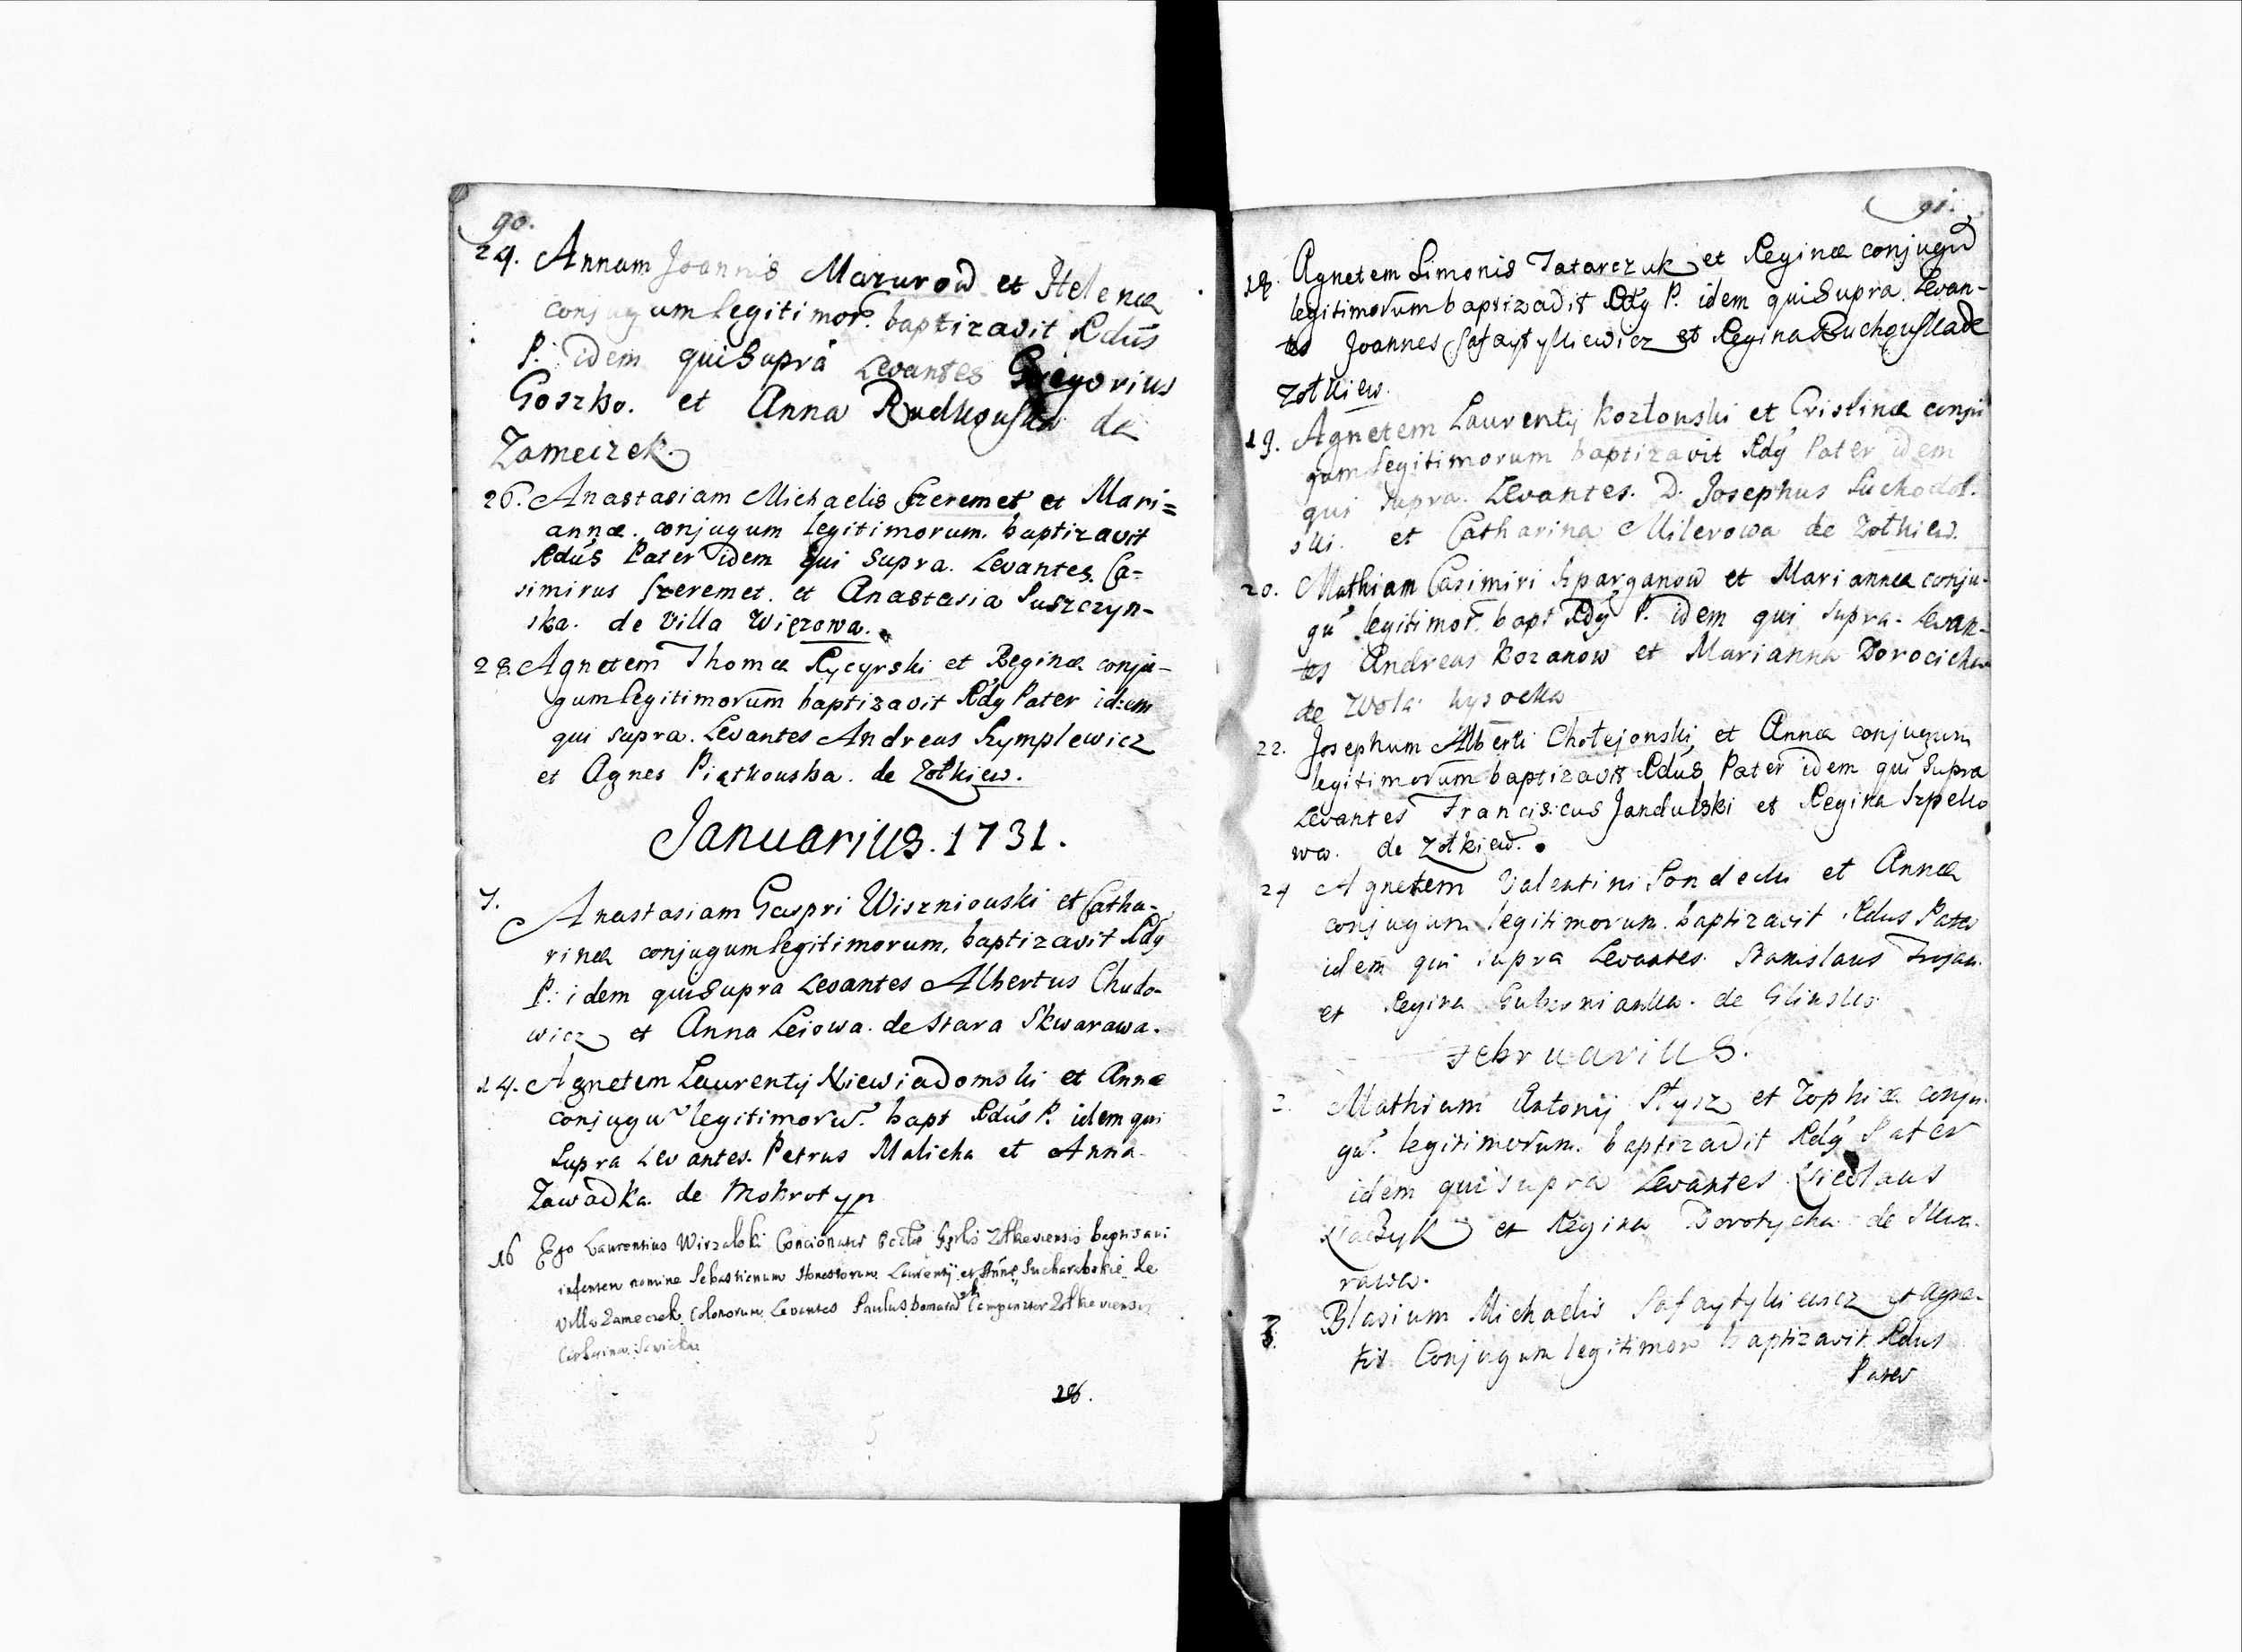 90.
24. Annam Joannis Mazurow et Helenæ
conjugum legitimor. baptizavit Rdūs
P. idem qui supra Levantes Gregorius
Goszko. et Anna Rudkouska de
Zameczek.
26. Anastasiam Michaelis Szeremet et Mari=
annæ. conjugum legitimorum. baptizavit
Rdūs Pater idem qui supra. Levantes. Ca-
simirus Szeremet. et Anastasia Suszczyn-
ska. de villa Więzowa.
28. Agnetem Thomæ Rycyrski et Reginæ conju-
gum legitimorūm baptizavit Rdy Pater idem
qui supra. Levantes Andreas Szymplewicz
et Agnes Piątkouska. de Zołkiew.
Januarius. 1731.
7. Anastasiam Gaspri Wiszniouski et Catha-
rinæ conjugum legitimorum, baptizavit Rdy
P. idem qui supra Levantes Albertus Chudo-
wicz et Anna Leiowa. de Stara Skwarawa.
14. Agnetem Laurentij Niewiadomski et Annæ
conjugū legitimorū. bapt Rdūs P. idem qui
supra Levantes. Petrus Malicha et Anna
Zawadka. de Mokrotyn
16 Ego Laurentius Wirzalski Concionator Zołkieviensis baptisavi
infantem nomine Sebastianum Honestorum Laurentij et Annę de
villa Zameczek Colonorum Levantes Paulus Zołkieviensis
Sawicka
18.
91.
18. Agnetem Simonis Tatarczuk et Reginæ conjugū
legitimorūm baptizavit Rdy P. idem qui supra. Levan-
tes Joannes Safaytykiewicz et Regina Ruchouska de
Zołkiew.
19. Agnetem Laurentij Kozłouski et Cristinæ conju
gum legitimorum baptizavit Rdy Pater idem
qui supra. Levantes. D. Josephus Suchodol-
ski. et Catharina Milerowa de Zołkiew.
20. Mathiam Casimiri Szparganow et Mariannæ conju-
gū legitimor. bapt Rdy P. idem qui supra. Levan-
tes Andreas Kozanow et Marianna Dorocicha
de Wola Wysocka
22. Josephum Alberti Chołejonski et Annæ conjugum
legitimorūm baptizavit Rdūs Pater idem qui supra
Levantes Franciscus Jandulski et Regina Szpeko
wa. de Zołkiew.
24 Agnetem Valentini Sondecki et Annæ
conjugum legitimorum. baptizavit Rdus Pater
idem qui supra Levantes. Stanislaus Trojan.
et Regina Guberniaska. de Glinsko.
Februarius.
2. Mathiam Antonij Stysz et Zophiæ conju-
gū. legitimorum. baptizavit Rdy Pater
idem qui supra Levantes Nicolaus
et Regina Dorotycha de Skwa-
rawa.
3. Blasium Michaelis Safaytykiewicz et Agne-
tis Conjugum legitimor baptizavit Rdus
Pater